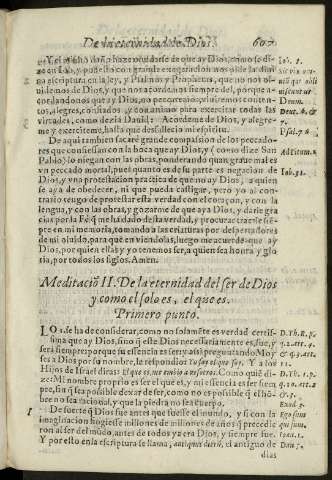 De la eternidad de Dios. 607
zo en Iob, y puesto con grande exageracion nos pide la diuina
escriptura en la ley, y Psalmos y Prophetas, que no nos ol-
uidemos de Dios, y que nos acordemos siempre del, porque a-
cordandonos que ay Dios, no pecaremos, y viuiremos conten-
tos, alegres, confiados, y con animo para exercitar todas las
virtudes, como dezia Dauid: Acordeme de Dios, y alegre-
me y exerciteme, hasta que desfallecio mi espiritu.
De aqui tambien sacaré grande compassion de los peccado-
res que confiessan con la boca que ay Dios, y (como dize San
Pablo) lo niegan con las obras, ponderando quan graue mal es
vn peccado mortal, pues quanto es de su parte es negacion de
Dios, y vna protestacion practica de que no ay Dios, a quien
se aya de obedecer, ni que pueda castigar, pero yo al con-
trario tengo de protestar esta verdad con el coraçon, y con la
lengua, y con las obras, y gozarme de que aya Dios, y darle gra
cias por la Fè q̃ me ha dado desta verdad, y procurar traerle siem
pre en mi memoria, tomando a las criaturas por despertadores
de mi oluido, para que en viendolas, luego me acuerde que ay
Dios, por quien ellas y yo tenemos ser, a quien sea honra y glo
ria, por todos los siglos. Amen.
Meditaciō II. De la eternidad del ser de Dios
y como el solo es, el que es.
Primero punto.
LO I. se ha de considerar, como no solamēte es verdad certis-
sima que ay Dios, sino q̃ este Dios necessariamente es, fue, y
será siempre: porque su essencia es ser: y assi preguntando Moy
ses a Dios por su nombre, le respondio: Yo soy el que soy. Y a los
Hijos de Israel dirás: El que es, me embio a vosotros. Como quiē di-
ze: Mi nombre proprio es ser el que es, y mi essencia es ser siem
pre, sin q̃ sea possible dexar de ser, como no es possible q̃ el hō-
bre no sea racional, y que la piedra no sea cuerpo.
1 De suerte q̃ Dios fue antes que fuesse el mundo, y si con la
imaginacion hogiesse millones de millones de años q̃ precedie
ron al ser del mūdo, antes de todos ya era Dios, y siempre fue.
Y por esto en la escriptura se llama, antiquus dierū, el antiguo de
dias
Iob. 8.
Deut. 6.
Psal. 76
Ad Titum. 1.
Iob. 31.
Exod. 3.
Ioan. 1.
Dan. 7.